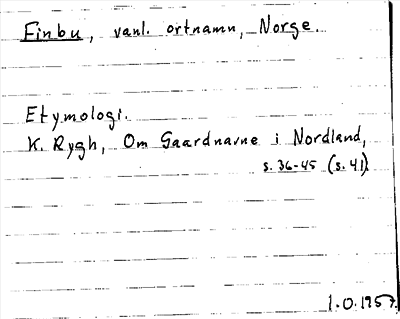 Finbu, vanl. ortnamn, Norge.
Etymologi.
K. Rygh, Om Gaardnavne i Nordland,
s. 36-45 (s. 41)
I.O. 1957.